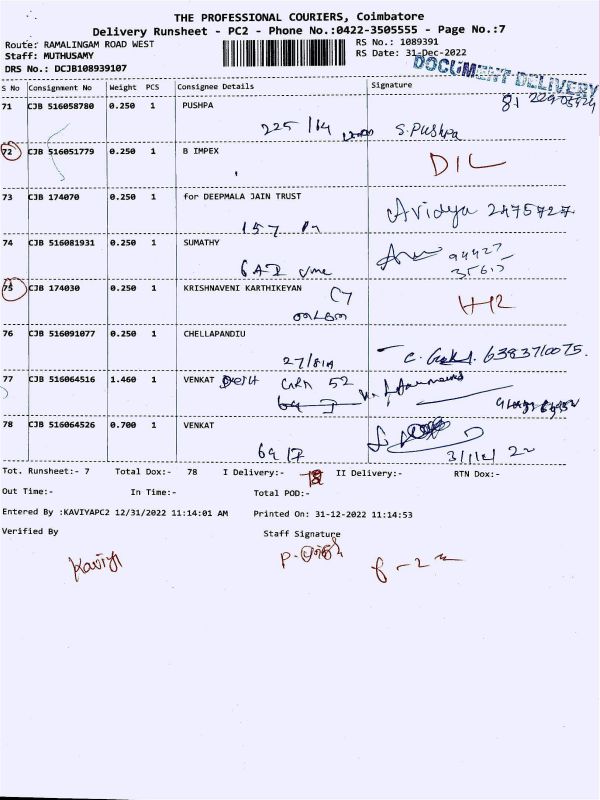 THE PROFESSIONAL COURIERS, Coimbatore
Delivery Runsheet - PC2 - Phone No.:0422-3505555 - Page No.:7
Route: RAMALINGAM ROAD WEST
RS No.: 1089391
Staff: MUTHUSAMY
RS Date: 31-Dec-2022
DRS No.: DCJB108939107
DOCUMENT DELIVERY
S No Consignment No Weight PCS Consignee Details Signature
71 CJB 516058780 0.250 1 PUSHPA
225/14 S.Pushpa
72 CJB 516051779 0.250 1 B IMPEX
DIL
73 CJB 174070 0.250 1 for DEEPMALA JAIN TRUST
157 Avidya 2475727
74 CJB 516081931 0.250 1 SUMATHY
94427
35615
75 CJB 174030 0.250 1 KRISHNAVENI KARTHIKEYAN
76 CJB 516091077 0.250 1 CHELLAPANDIU
27/81A 6383710075.
77 CJB 516064516 1.460 1 VENKAT
52
78 CJB 516064526 0.700 1 VENKAT
Tot. Runsheet:- 7 Total Dox:- 78 I Delivery:- II Delivery:- RTN Dox:-
Out Time:- In Time:- Total POD:-
Entered By :KAVIYAPC2 12/31/2022 11:14:01 AM Printed On: 31-12-2022 11:14:53
Verified By Staff Signature
Kaviya